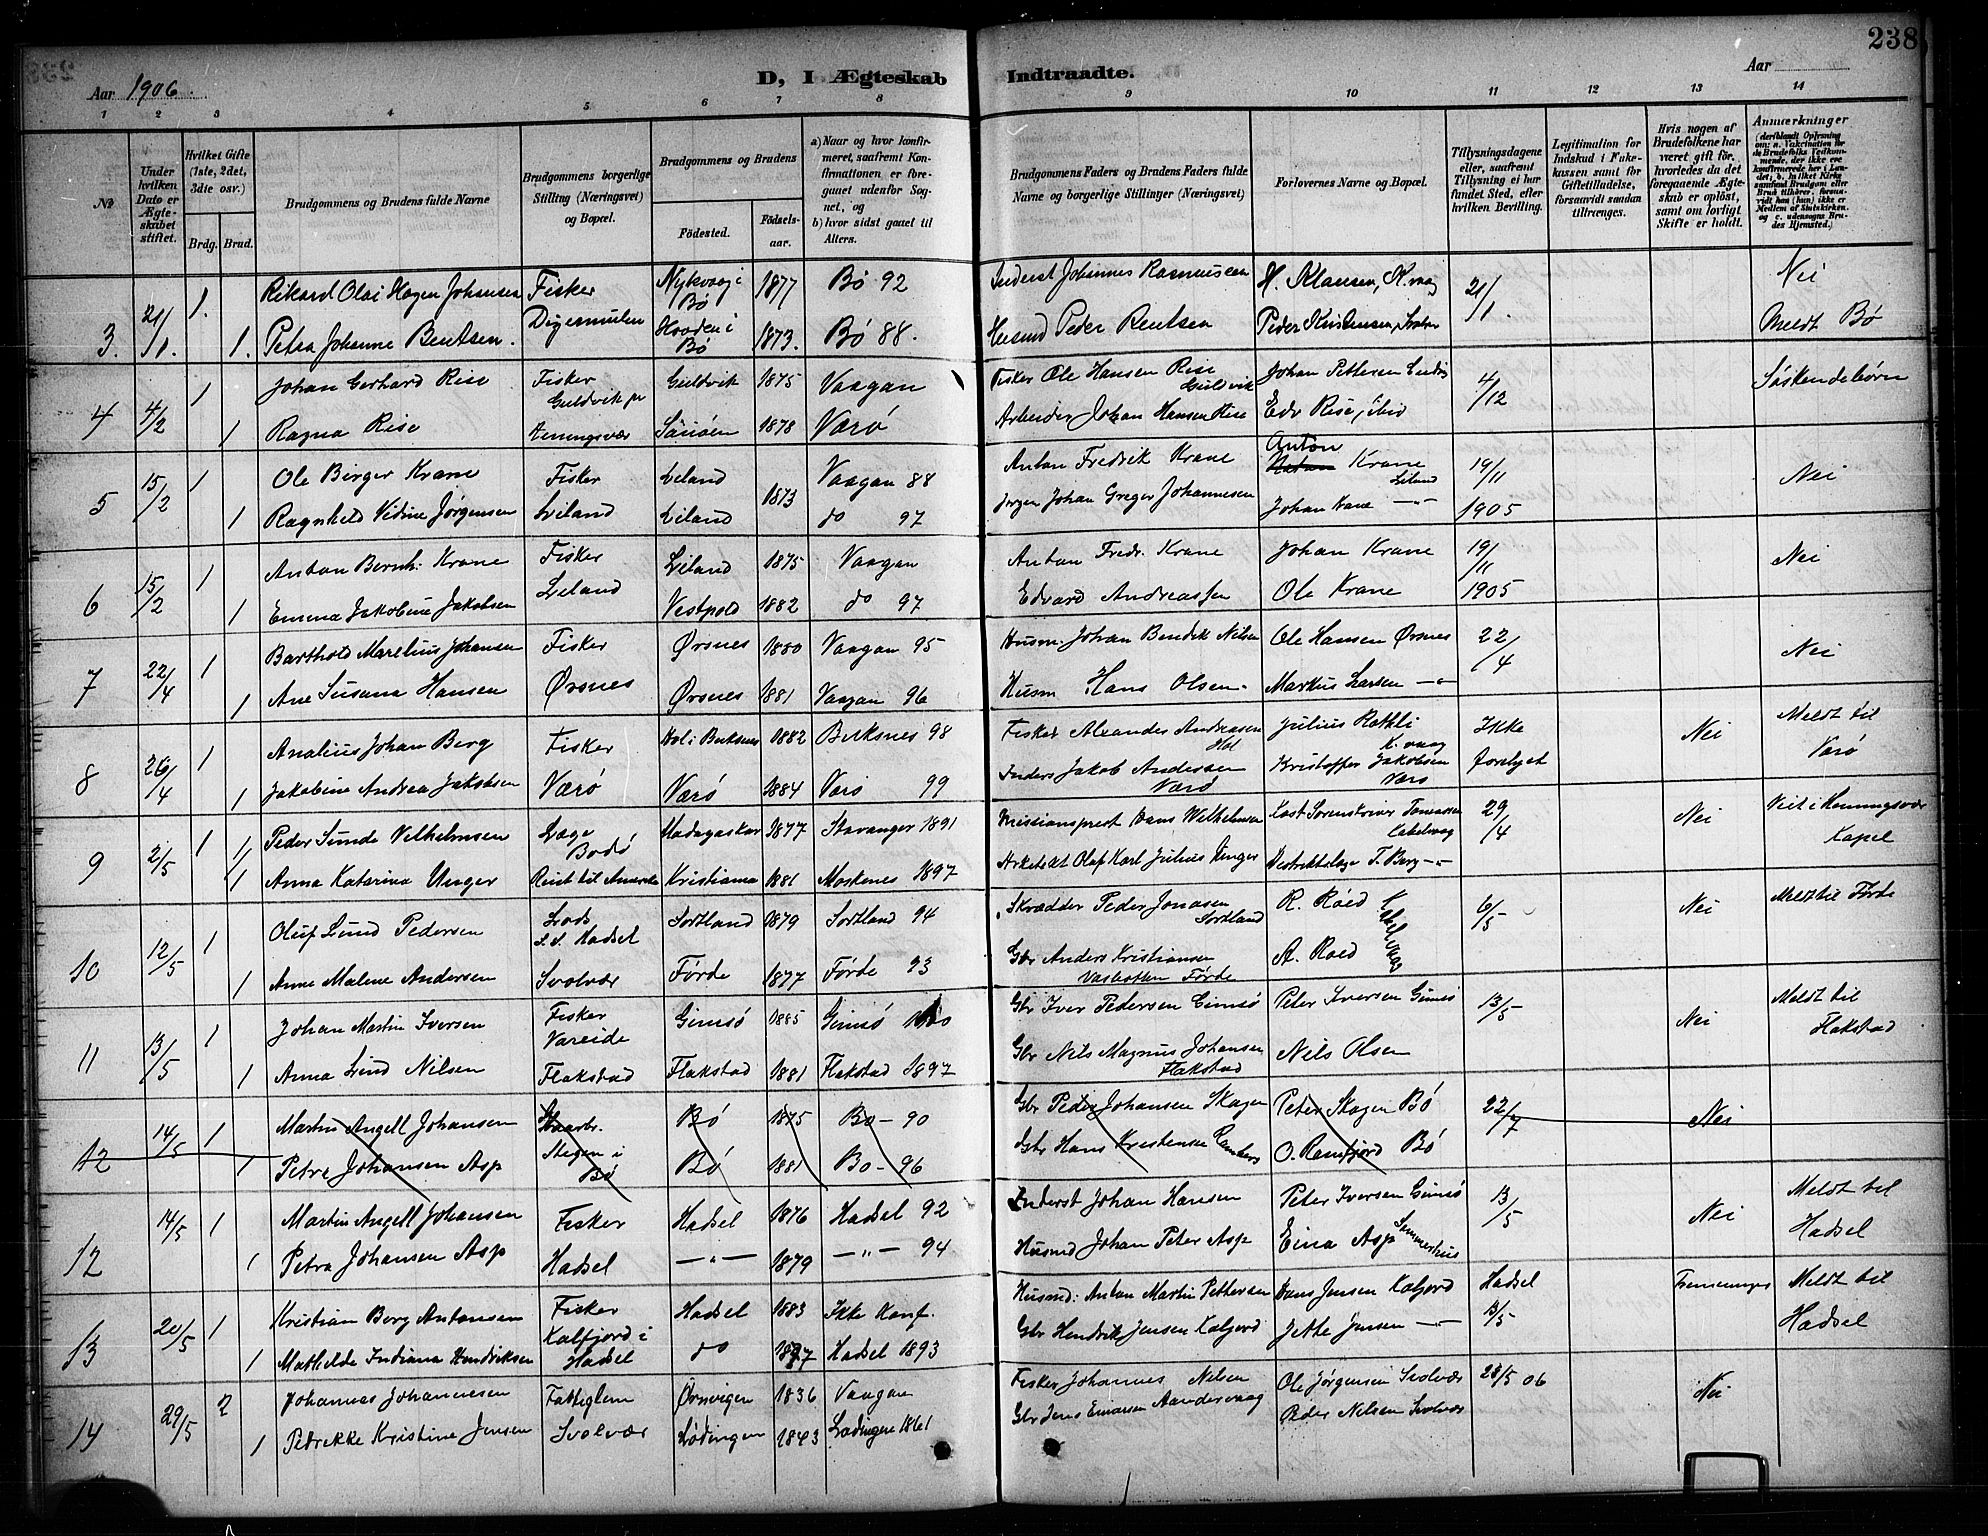 238
Aar 1906.
D, I Ægteskab Indtraadte.
Aar
1 2 3 4 5 6 7 8 9 10 11 12 13 14
№
Under hvilken Dato er Ægteskabet stiftet.
Hvilket Gifte (1ste, 2det, 3die osv.)
Brdg. Brud.
Brudgommens og Brudens fulde Navne
Brudgommens borgerlige Stilling (Næringsvei) og Bopæl.
Brudgommens og Brudens
Fødested.
Fødselsaar.
a) Naar og hvor konfirmeret, saafremt Konfirmationen er foregaaet udenfor Sognet, og
b) hvor sidst gaaet til Alters.
Brudgommens Faders og Brudens Faders fulde Navne og borgerlige Stillinger (Næringsvei)
Forlovernes Navne og Bopæl.
Tillysningsdagene eller, saafremt Tillysning ei har fundet Sted, hvilken Bevilling.
Legitimation for Indskud i Fakekassen samt for Giftetilladelse, forsaavidt saadan tiltrænges.
Hvis nogen af Brudefolkene har været gift før, hvorledes da det foregaaende Ægteskab er opløst, samt om lovligt Skifte er holdt.
Anmærkninger
3. 21/1. 1. Rikard Olai Hagen Johansen Fisker Nykvaag i Bø 1877 Bø 92 Inderst Johannes Rasmussen H. Klausen, K.vaag 21/1. Nei
1. Petra Johanne Bentsen. Digermulen Hovden i Bø 1873. Bø 88. Husmd Peder Bentsen Peder Kristensen, Meldt Bø
4 4/2 1 Johan Gerhard Rise Fisker Guldvik 1875 Vaagan Fisker Ole Hansen Rise Guldvik Johan Pettersen 4/12 Søskendebørn
1 Ragna Rise Guldvik pr Henningsvær 1878 Værø Arbeider Johan Hansen Rise Edv Rise, ibid
5 15/2 1 Ole Birger Krane Fisker Leland Vaagan 88 Anton Fredrik Krane Anton Krane Leland 19/11 Nei
1 Ragnhild Vidine Jørgensen Leland Leland 1873 do 97 Jørgen Johan Greger Johannesen Johan Krane —"— 1905
6 15/2 1 Anton Bernh. Krane Fisker Leland 1875 Vaagan Anton Fredr. Krane Johan Krane 19/11 Nei
1 Emma Jakobine Jakobsen Leland Vestpold 1882 do 97 Edvard Andreassen Ole Krane 1905
7 22/4 1 Barthold Marelius Johansen Fisker Ørsnes 1880 Vaagan 95 Husm. Johan Bendik Nilsen Ole Hansen Ørsnes 22/4 Nei
1 Ane Susana Hansen Ørsnes Ørsnes 1881 Vaagan 96 Husm Hans Olsen Markus Larsen —"—
8 26/4 1 Analius Johan Berg Fisker Hol i Buksnes 1882 Buksnes 98 Fisker Alexander Andreasen Hol Julius Rathli K.vaag Ikke Nei Meldt til
1 Jakobine Andrea Jakobsen Værø Værø 1884 Værø 99 Inders Jakob Andersen Værø Kristoffer Jakobsen Værø forelyst Værø
9 2/5 1 Peder Sunde Vilhelmsen Læge Bodø Madagaskar 1877 Stavanger 1891 Missionsprest Hans Wilhelmsen 29/4 Nei Viet i Henningsvær
1 Anna Katarina Unger Reist til Amerika Kristiania 1881 Moskenes 1897 Arkitekt Olaf Karl Julius Unger Distriktslæge T. Berg —"— Kapel
10 12/5 1 Oluf Lund Pedersen Lods Hadsel Sortland 1879 Sortland 94 Skrædder Peder Jonasen Sortland R. Røed 6/5 Nei Meldt til Førde
1 Anne Malene Andersen Svolvær Førde 1877 Førde 93 Gbr Anders Kristiansen Førde A. Roed
11 13/5 1 Johan Martin Iversen Fisker Vareide Gimsø 1885 Gimsø Gbr Iver Pedersen Gimsø Peter Iversen Gimsø 13/5 Nei Meldt til
1 Anna Lind Nilsen Flakstad Flakstad 1881 Flakstad 1897 Gbr Nils Magnus Johansen Flakstad Nils Olsen Flakstad
12 14/5 1 Martin Angell Johansen Bø 1875 Bø - 90 Gbr Peder Johansen Skagen Peter Skagen Bø 22/7 Nei
1 Petra Johansen Asp Stegen i Bø Bø 1881 Bo - 96 Gbr Hans Kristensen O. Ramfjord Bø
12 14/5 1 Martin Angell Johansen Fisker Hadsel 1876 Hadsel 92 Inderst Johan Hansen Peter Iversen Gimsø 13/5 Nei Meldt til
1 Petra Johansen Asp Hadsel —"— 1879 —"— 94 Husmd Johan Peter Asp Eina Asp Sommerhus Hadsel
13 20/5 1 Kristian Berg Antonsen Fisker Hadsel 1883 Ikke Konf. Husmd: Anton Martin Pettersen Hans Jensen Kalfjord Hadsel Fremmenger Meldt til
1 Mathilde Indiana Hendriksen Kalfjord i Hadsel do 1877 Hadsel 1893 Gbr Hendrik Jensen Kalfjord Jette Jensen —"— 13/5 Hadsel
14 29/5 2 Johannes Johannesen Fattiglem Ørnvigen 1836 Vaagan Fisker Johannes Nilsen Ole Jørgensen Svolvær 28/5 06 Nei
1 Petrikke Kristine Jensen Svolvær Lødingen 1843 Lødingen 1861 Gbr Jens Peder Nilsen Svolvær